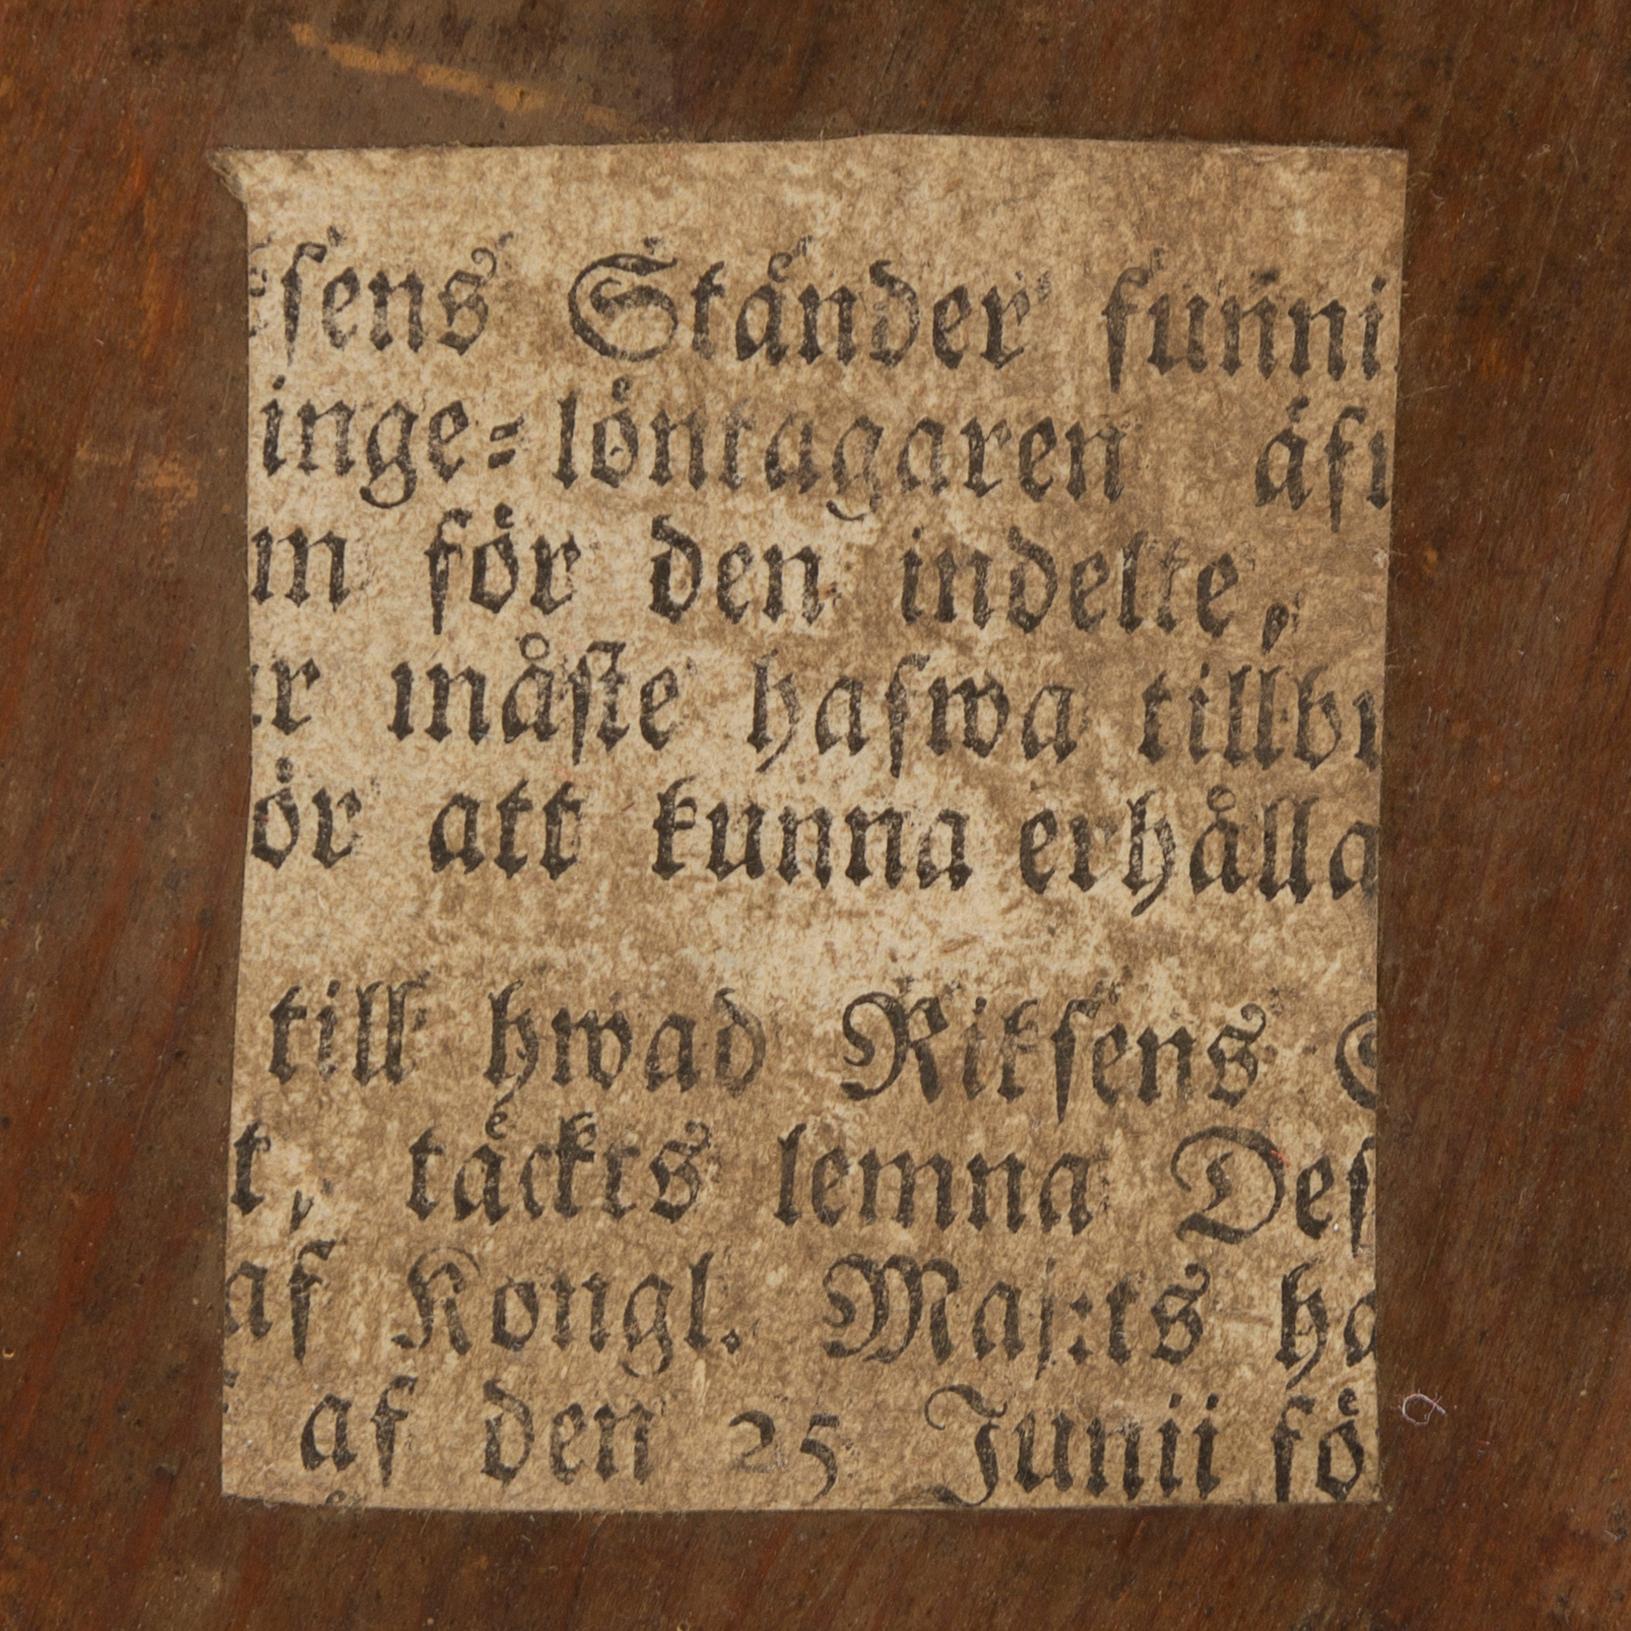 ksens Ständer funni
inge-löntagaren äfw
m för den indelte,
r måste hafwa tillbu
ör att kunna erhålla
till hwad Riksens S
t, täckts lemna Des
af Kongl. Maj:ts ha
af den 25 Junii fö